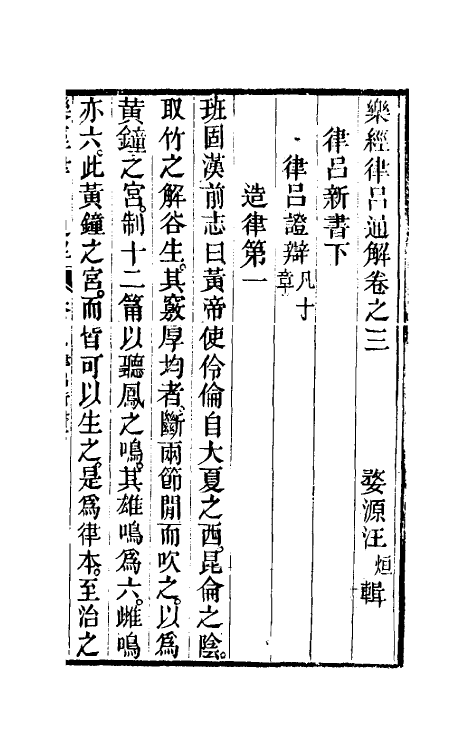 樂經律呂通解卷之三
婺源汪烜輯
律呂新書下
律呂證辯凡十章
造律第一
班固漢前志曰黃帝使伶倫自大夏之西。昆侖之陰。
取竹之解谷生。其竅厚均者。斷兩節閒而吹之。以爲
黃鐘之宮。制十二筩以聽鳳之鳴。其雄鳴爲六。雌鳴
亦六。此黃鐘之宮。而皆可以生之。是爲律本。至治之